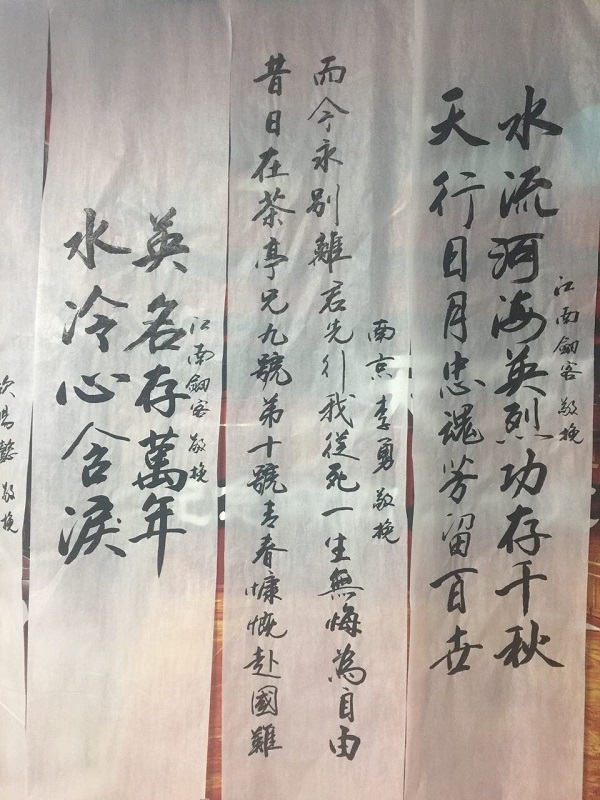 江南劍客 敬挽
水流河海英烈功存千秋
天行日月忠魂芳留百世
南京李勇 敬挽
而今永别離君先引我從死一生無悔為自由
昔日在茶亭兄九號弟十號青春慷慨赴國難
江南劍客 敬挽
英名存萬年
水冷心含淚
敬挽